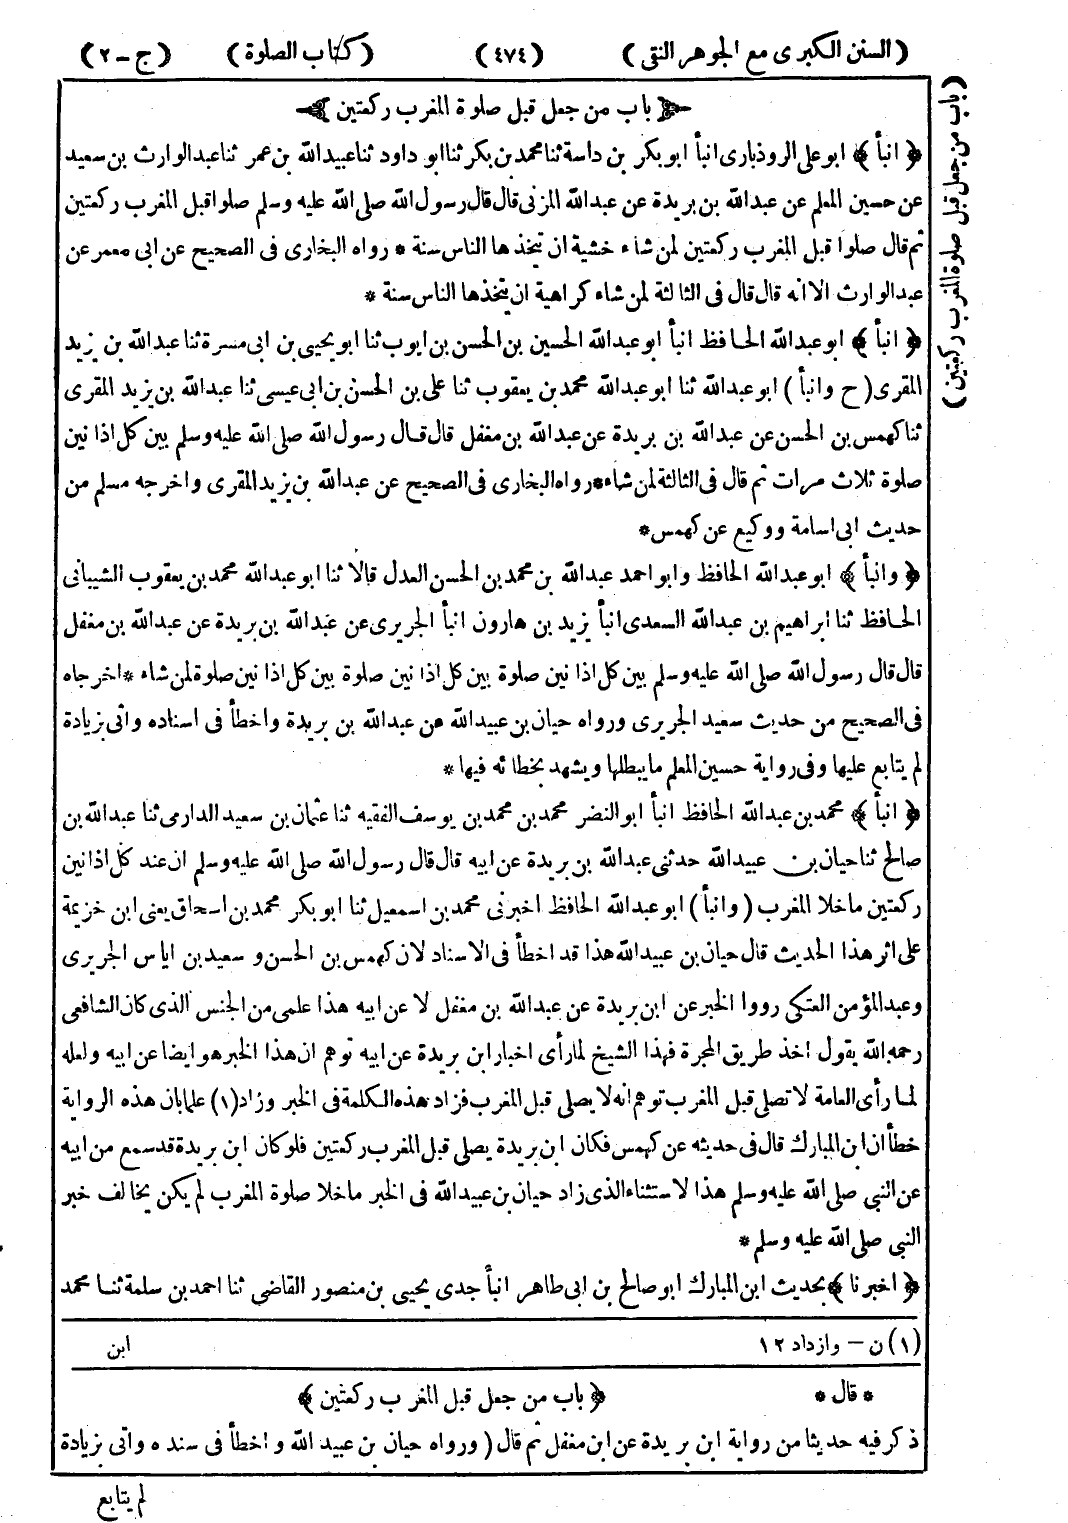 (السنن الكبرى مع الجوهر النقى) (٤٧٤) (كتاب الصلوة) (ج - ٢)
(باب من جعل قبل صلوة المغرب ركعتين)
باب من جعل قبل صلوة المغرب ركعتين
﴿ انبأ ﴾ ابو على الروذبارى انبأ ابو بكر بن داسة ثنا محمد بن بكر ثنا ابو داود ثنا عبيد الله بن عمر ثنا عبد الوارث بن سعيد
عن حسين المعلم عن عبد الله بن بريدة عن عبد الله المزنى قال قال رسول الله صلى الله عليه وسلم صلوا قبل المغرب ركعتين
ثم قال صلوا قبل المغرب ركعتين لمن شاء خشية ان يتخذها الناس سنة * رواه البخارى فى الصحيح عن ابى معمر عن
عبد الوارث الا انه قال قال فى الثالثة لمن شاء كراهية ان يتخذها الناس سنة *
﴿ انبأ ﴾ ابو عبد الله الحافظ انبأ ابو عبد الله الحسين بن الحسن بن ايوب ثنا ابو يحيى بن ابى مسرة ثنا عبد الله بن يزيد
المقرى (ح وانبأ) ابو عبد الله ثنا ابو عبد الله محمد بن يعقوب ثنا على بن الحسن بن ابى عيسى ثنا عبد الله بن يزيد المقرى
ثنا كهمس بن الحسن عن عبد الله بن بريدة عن عبد الله بن مغفل قال قال رسول الله صلى الله عليه وسلم بين كل اذانين
صلوة ثلاث مرات ثم قال فى الثالثة لمن شاء * رواه البخارى فى الصحيح عن عبد الله بن يزيد المقرى واخرجه مسلم من
حديث ابى اسامة ووكيع عن كهمس *
﴿ وانبأ ﴾ ابو عبد الله الحافظ وابو احمد عبد الله بن محمد بن الحسن العدل قالا ثنا ابو عبد الله محمد بن يعقوب الشيبانى
الحافظ ثنا ابراهيم بن عبد الله السعدى انبأ يزيد بن هارون انبأ الجريرى عن عبد الله بن بريدة عن عبد الله بن مغفل
قال قال رسول الله صلى الله عليه وسلم بين كل اذانين صلوة بين كل اذانين صلوة بين كل اذانين صلوة لمن شاء * اخرجاه
فى الصحيح من حديث سعيد الجريرى ورواه حيان بن عبيد الله عن عبد الله بن بريدة واخطأ فى اسناده واتى بزيادة
لم يتابع عليها وفى رواية حسين المعلم ما يبطلها ويشهد بخطائه فيها *
﴿ انبأ ﴾ محمد بن عبد الله الحافظ انبأ ابو النضر محمد بن محمد بن يوسف الفقيه ثنا عثمان بن سعيد الدارمى ثنا عبد الله بن
صالح ثنا حيان بن عبيد الله حدثنى عبد الله بن بريدة عن ابيه قال قال رسول الله صلى الله عليه وسلم ان عند كل اذانين
ركعتين ما خلا المغرب (وانبأ) ابو عبد الله الحافظ اخبرنى محمد بن اسمعيل ثنا ابو بكر محمد بن اسحاق يعنى ابن خزيمة
على اثر هذا الحديث قال حيان بن عبيد الله هذا قد اخطأ فى الاسناد لان كهمس بن الحسن وسعيد بن اياس الجريرى
وعبد المؤمن العتكى رووا الخبر عن ابن بريدة عن عبد الله بن مغفل لا عن ابيه هذا علمى من الجنس الذى كان الشافعى
رحمه الله يقول اخذ طريق المجرة فهذا الشيخ لما رأى اخبار ابن بريدة عن ابيه توهم ان هذا الخبر هو ايضا عن ابيه ولعله
لما رأى العامة لا تصلى قبل المغرب توهم انه لا يصلى قبل المغرب فزاد هذه الكلمة فى الخبر وزاد (١) علما بان هذه الرواية
خطأ ان ابن المبارك قال فى حديثه عن كهمس فكان ابن بريدة يصلى قبل المغرب ركعتين فلو كان ابن بريدة قد سمع من ابيه
عن النبى صلى الله عليه وسلم هذا لاستثناء الذى زاد حيان بن عبيد الله فى الخبر ما خلا صلوة المغرب لم يكن يخالف خبر
النبى صلى الله عليه وسلم *
﴿ اخبرنا ﴾ بحديث ابن المبارك ابو صالح بن ابى طاهر انبأ جدى يحيى بن منصور القاضى ثنا احمد بن سلمة ثنا محمد
(١) ن - وازداد ١٢ ابن
* قال * ﴿ باب من جعل قبل المغرب ركعتين ﴾
ذكر فيه حديثا من رواية ابن بريدة عن ابن مغفل ثم قال (ورواه حيان بن عبيد الله واخطأ فى سنده واتى بزيادة
لم يتابع